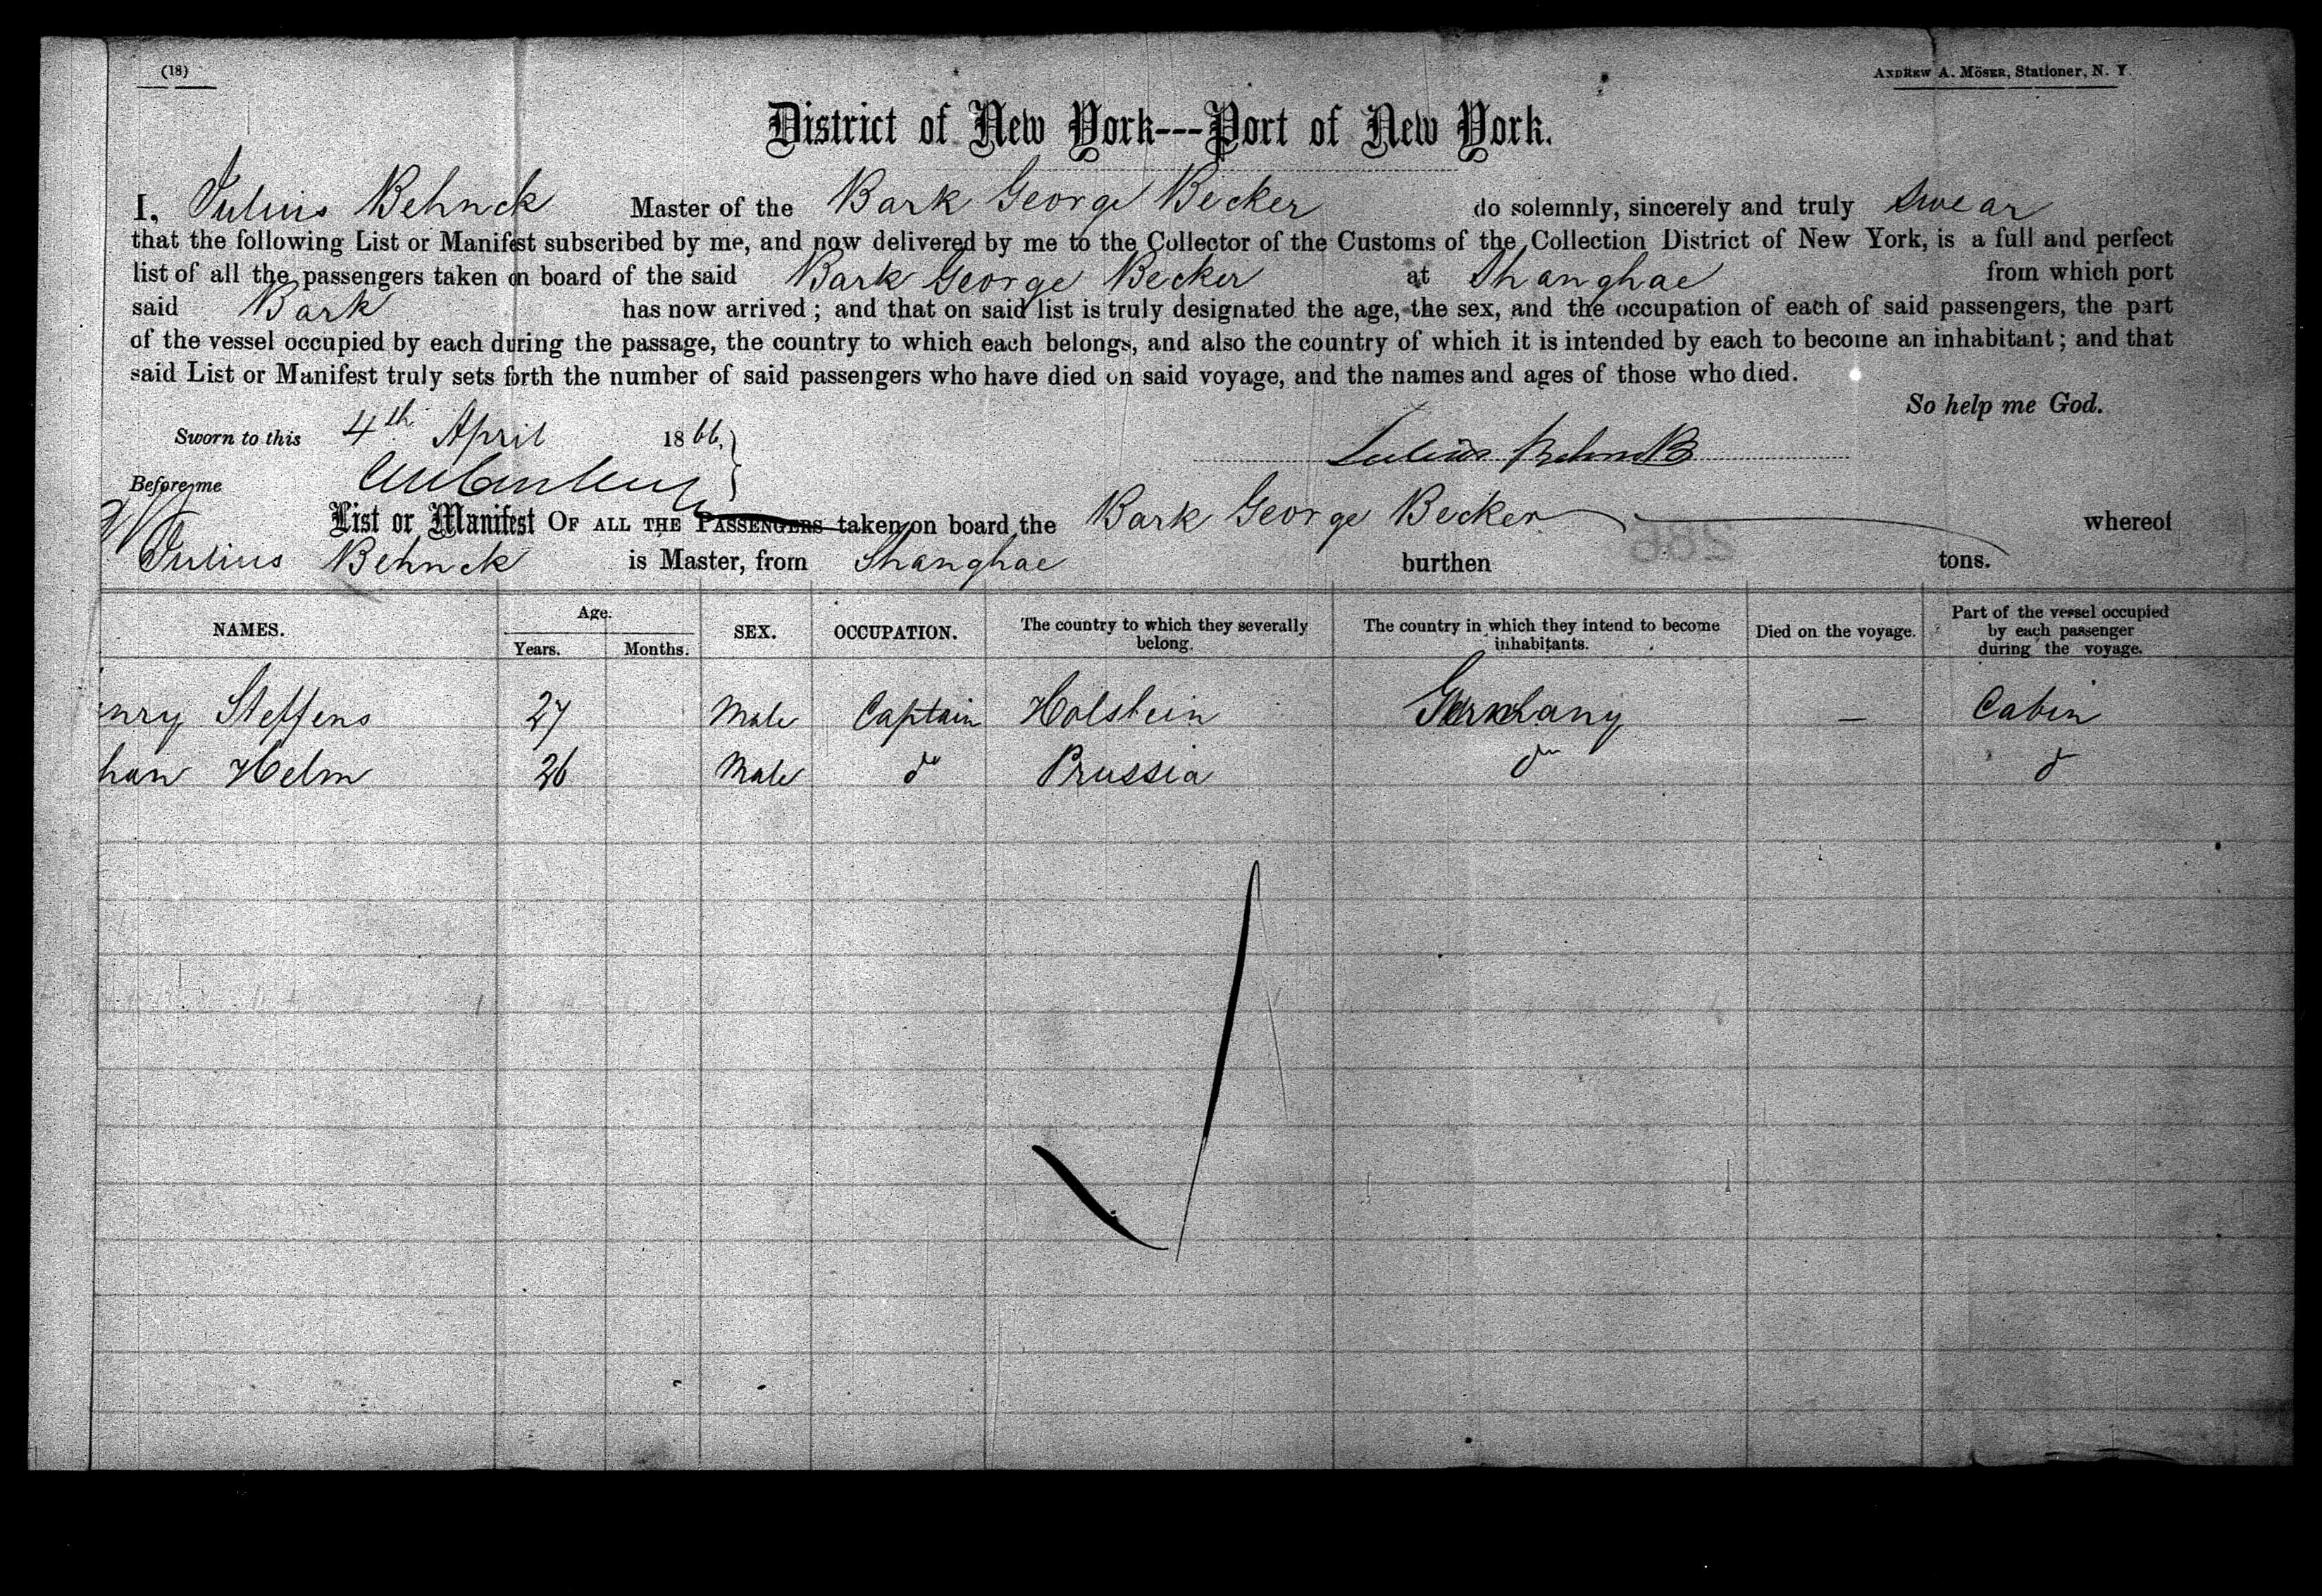 (18)
ANDREW A. MÖSER, Stationer, N. Y.
District of New York---Port of New York.
I, Julius Behnck Master of the Bark George Becker do solemnly, sincerely and truly swear
that the following List or Manifest subscribed by me, and now delivered by me to the Collector of the Customs of the Collection District of New York, is a full and perfect
list of all the passengers taken on board of the said Bark George Becker at Shanghae from which port
said Bark has now arrived; and that on said list is truly designated the age, the sex, and the occupation of each of said passengers, the part
of the vessel occupied by each during the passage, the country to which each belongs, and also the country of which it is intended by each to become an inhabitant; and that
said List or Manifest truly sets forth the number of said passengers who have died on said voyage, and the names and ages of those who died.
So help me God.
Sworn to this 4th April 1866,
Julius Behnck
Before me
List or Manifest OF ALL THE PASSENGERS taken on board the Bark George Becker whereof
Julius Behnck is Master, from Shanghae burthen tons.
NAMES. Age. Years. Months. SEX. OCCUPATION. The country to which they severally belong. The country in which they intend to become inhabitants. Died on the voyage. Part of the vessel occupied by each passenger during the voyage.
nry Steffens 27 Male Captain Holstein Germany — Cabin
han Helm 26 Male do Prussia do do